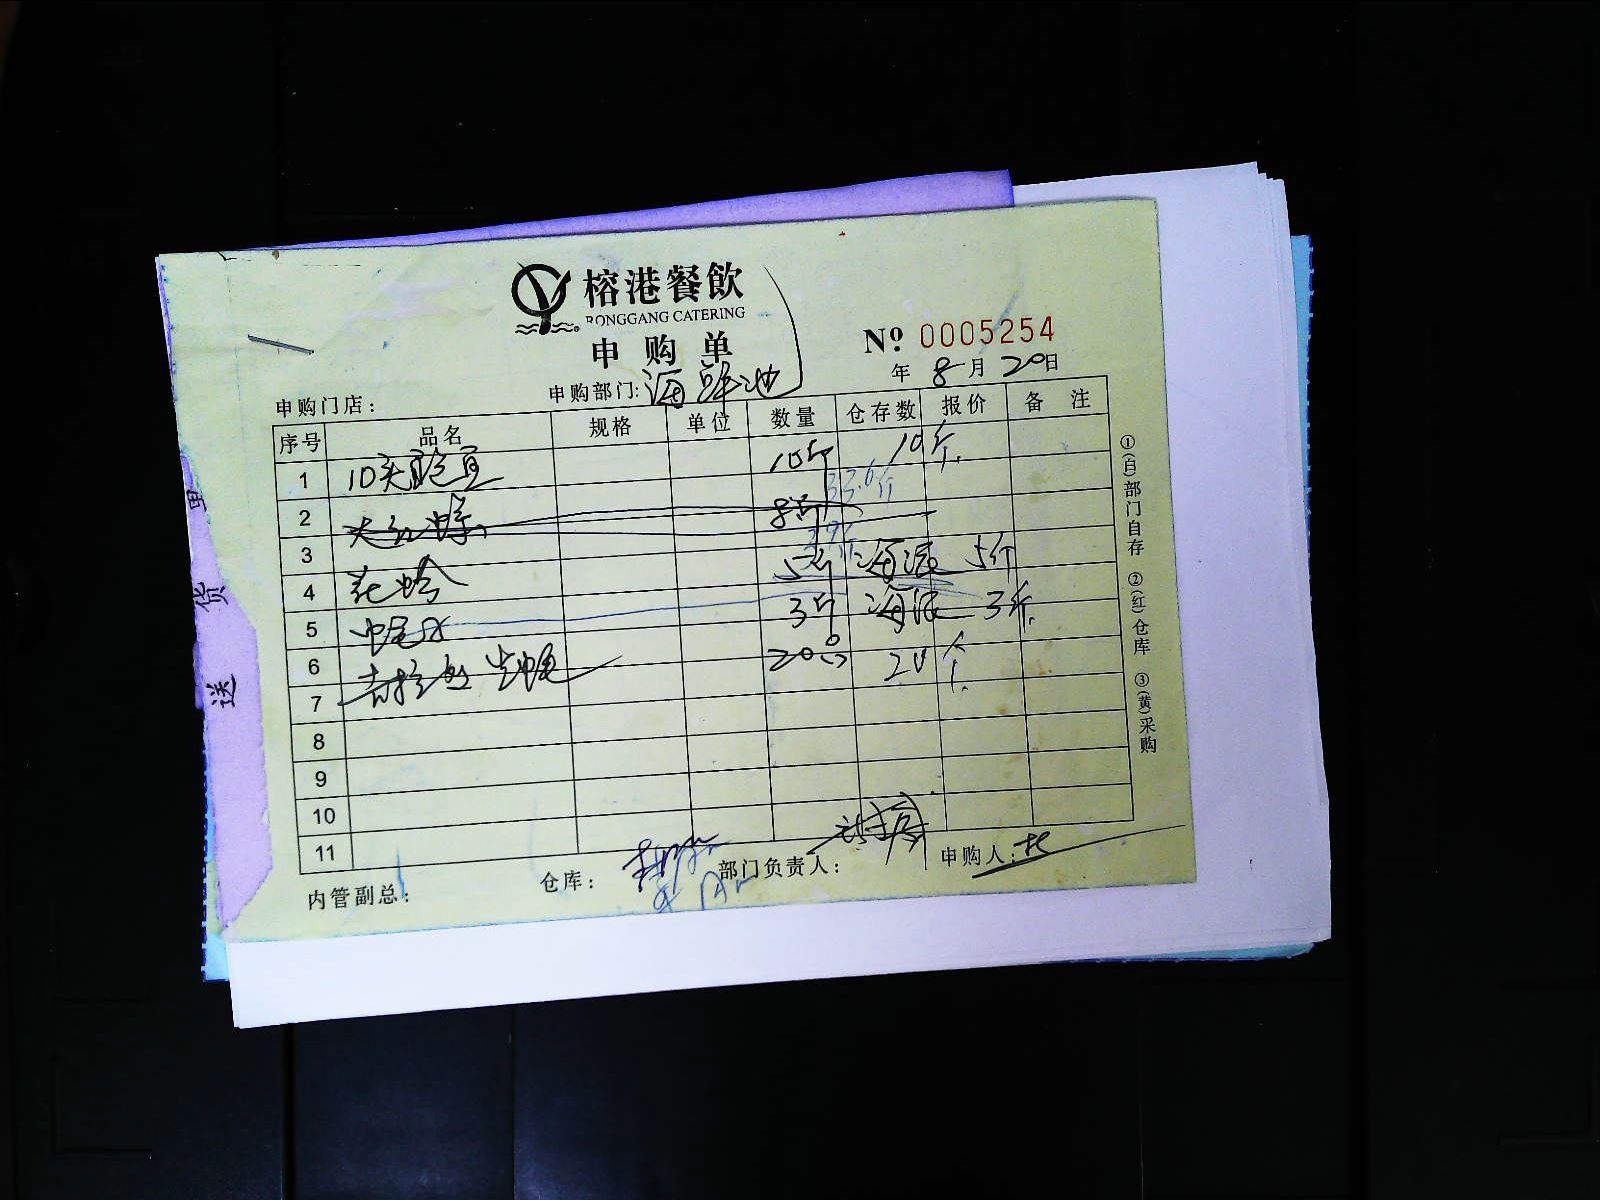 榕港餐飲
RONGGANG CATERING
申购单
№ 0005254
年 8 月 20 日
申购门店： 申购部门: 海鲜池
序号 品名 规格 单位 数量 仓存数 报价 备注
1 10头鲍鱼 10斤 10斤
33.6斤
2 8斤
3
4 花蛤 5斤 海派 5斤
5 3斤 海派 3斤
6 20 20个
7
8
9
10
11
内管副总： 仓库： 部门负责人： 申购人：
①(白)部门自存 ②(红)仓库 ③(黄)采购
货
送